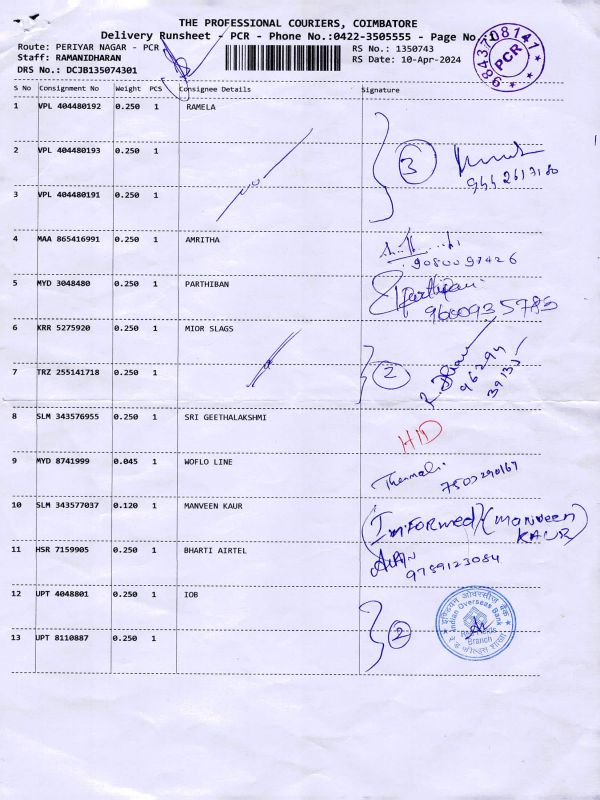 THE PROFESSIONAL COURIERS, COIMBATORE
Delivery Runsheet - PCR - Phone No.:0422-3505555 - Page No
Route: PERIYAR NAGAR - PCR
RS No.: 1350743
Staff: RAMANIDHARAN
RS Date: 10-Apr-2024
DRS No.: DCJB135074301
*9843708141*
PCR
S No Consignment No Weight PCS Consignee Details Signature
1 VPL 404480192 0.250 1 RAMELA
2 VPL 404480193 0.250 1
3
3 VPL 404480191 0.250 1
4 MAA 865416991 0.250 1 AMRITHA
9080097426
5 MYD 3048480 0.250 1 PARTHIBAN
Parthiban
9600935783
6 KRR 5275920 0.250 1 MIOR SLAGS
7 TRZ 255141718 0.250 1
2
8 SLM 343576955 0.250 1 SRI GEETHALAKSHMI
9 MYD 8741999 0.045 1 WOFLO LINE
10 SLM 343577037 0.120 1 MANVEEN KAUR
(Informed) (MANVEEN KAUR)
11 HSR 7159905 0.250 1 BHARTI AIRTEL
9789123084
12 UPT 4048801 0.250 1 IOB
13 UPT 8110887 0.250 1
2
इण्डियन ओवरसीज़ बैंक
Indian Overseas Bank
Branch